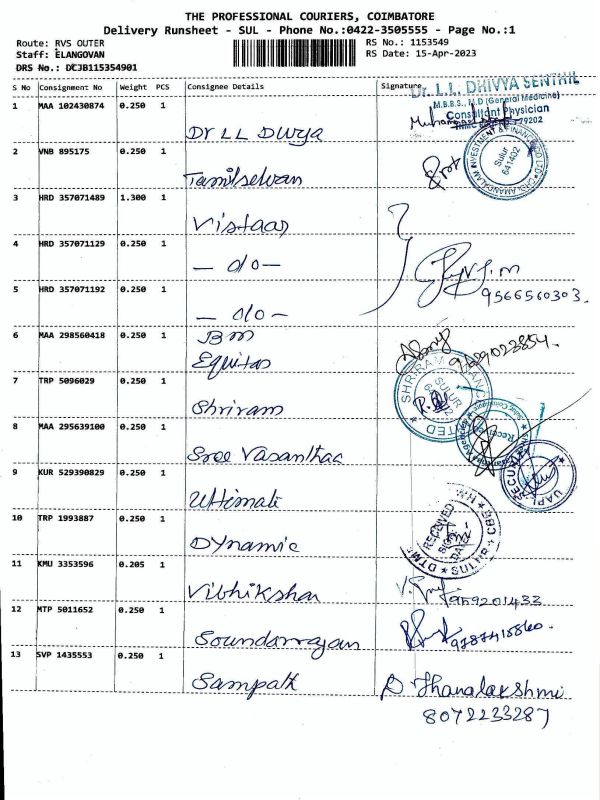 THE PROFESSIONAL COURIERS, COIMBATORE
Delivery Runsheet - SUL - Phone No.:0422-3505555 - Page No.:1
Route: RVS OUTER
RS No.: 1153549
Staff: ELANGOVAN
RS Date: 15-Apr-2023
DRS No.: DCJB115354901
S No Consignment No Weight PCS Consignee Details Signature
Dr. L.L. DHIVYA SENTHIL
M.B.B.S., M.D (General Medicine)
Consultant Physician
1 MAA 102430874 0.250 1
Dr LL Divya
2 VNB 895175 0.250 1
Tamilselvan
CHOLAMANDALAM INVESTMENT & FINANCE CO LTD
Sulur
641402
3 HRD 357071489 1.300 1
Vistaar
4 HRD 357071129 0.250 1
— d/o —
5 HRD 357071192 0.250 1
— d/o —
9566560303.
6 MAA 298560418 0.250 1
BM
Equitas
7 TRP 5096029 0.250 1
Shriram
SULUR
8 MAA 295639100 0.250 1
Sree Vasanthaa
9 KUR 529390829 0.250 1
Ultimate
10 TRP 1993887 0.250 1
Dynamic
RECEIVED
SIGN
DATE
11 KMU 3353596 0.205 1
Vibhikshan
959201433
12 MTP 5011652 0.250 1
Soundarrajan
13 SVP 1435553 0.250 1
Sampath
D Thanalakshmi
8072233287